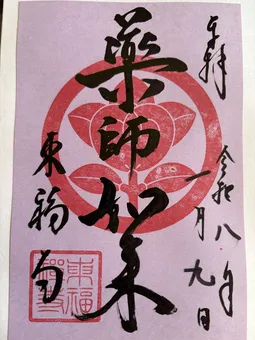 奉拝
令和八年
一月九日
薬師如来
東福寺
東福寺